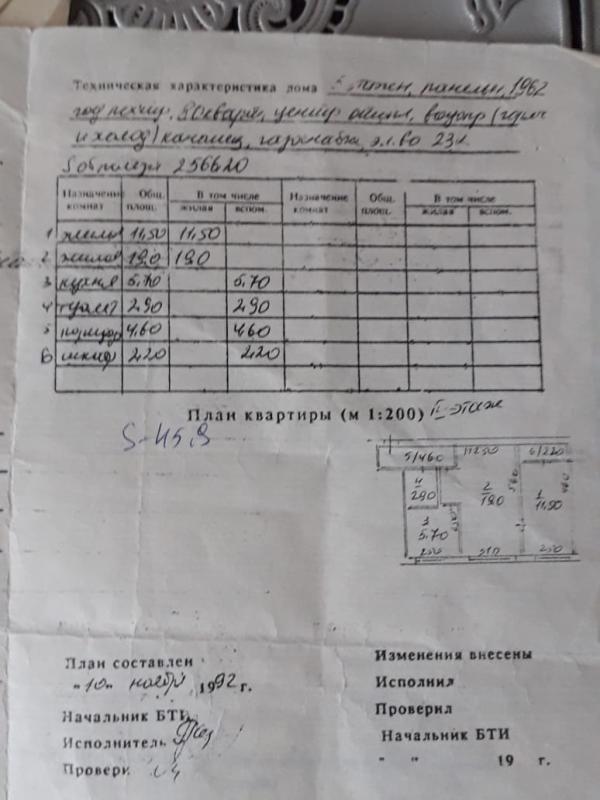 Техническая характеристика дома 5 этажн, панельн, 1962
год, 80 кварт, центр отопл, водопр (горяч
и холод)
S общ полезн 2566.20
Назначение комнат Общ. площ. В том числе Назначение комнат Общ. площ. В том числе
жилая вспом. жилая вспом.
1 жилая 11,50 11,50
2 жилая 19.0 19.0
3 кухня 5.70 5.70
4 туалет 2.90 2.90
5 коридор 4.60 4.60
6 шкаф 2.20 2.20
План квартиры (м 1:200) II этаж
S-45,9
5/460 6/220
4 290
2 190
1 11,50
3 5.70
План составлен
"10" ноября 1992 г.
Начальник БТИ
Исполнитель
Провери
Изменения внесены
Исполнил
Проверил
Начальник БТИ
" " 19 г.